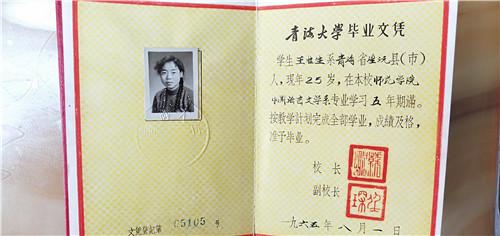 文凭登记第 05105 号
青海大学毕业文凭
学生王 生系青海省 县（市）
人，现年25岁，在本校师范学院
中国语言文学系专业学习五年期满。
按教学计划完成全部学业，成绩及格，
准予毕业。
校长
副校长
一九六五年八月一日